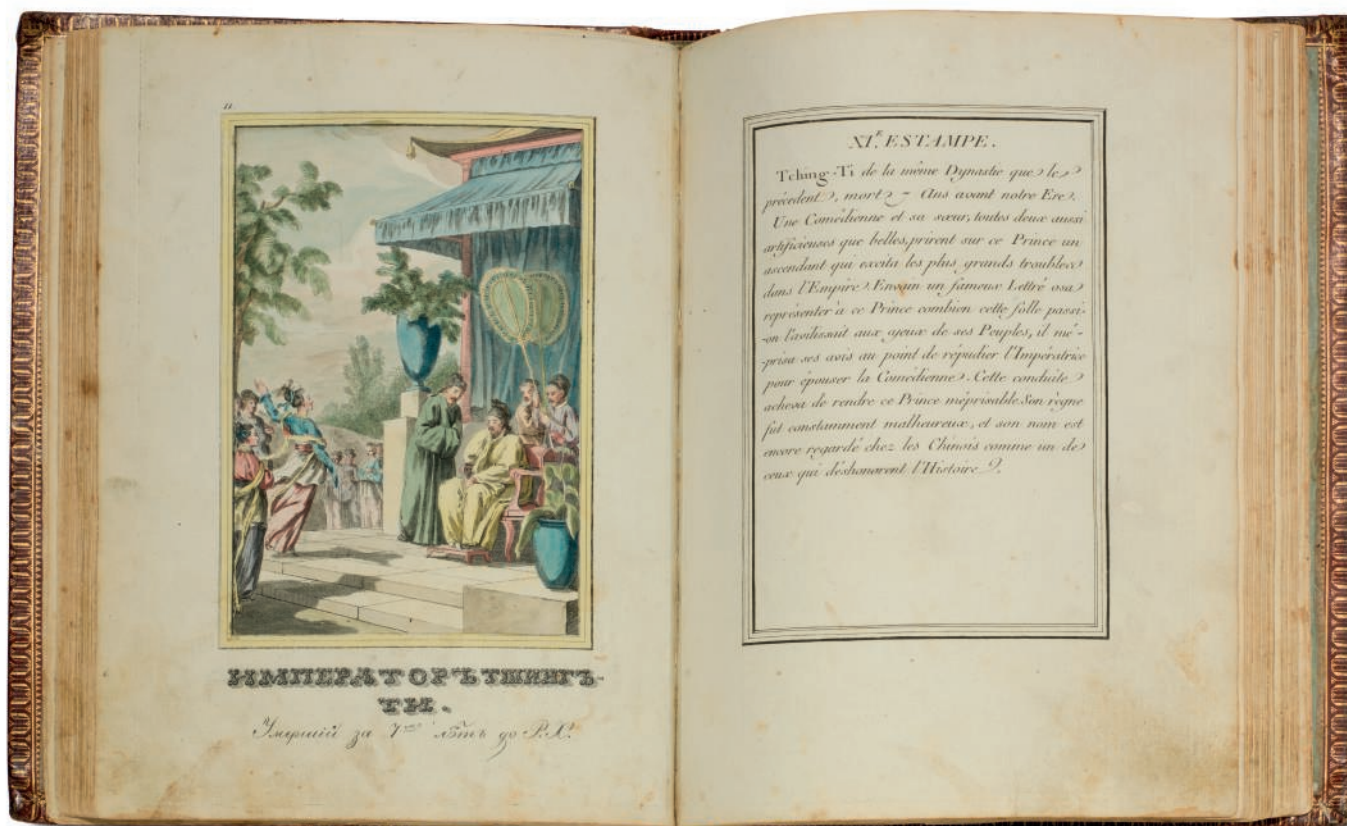 11.
ИМПЕРАТОРЪ ТШИНГЪ-
ТИ.
Умершій за 7мь лѣтъ до Р. Х.
XI.E ESTAMPE.
Tching-Ti de la même Dynastie que le
précédent, mort 7 Ans avant notre Ere.
Une Comédienne et sa sœur, toutes deux aussi
artificieuses que belles, prirent sur ce Prince un
ascendant qui excita les plus grands troubles
dans l'Empire. Envain un fameux Lettré osa
représenter à ce Prince combien cette folle passi-
-on l'avilissait aux yeux de ses Peuples, il mé-
-prisa ses avis au point de répudier l'Impératrice
pour épouser la Comédienne. Cette conduite
acheva de rendre ce Prince méprisable. Son règne
fut constamment malheureux, et son nom est
encore regardé chez les Chinois comme un de
ceux qui déshonorent l'Histoire.